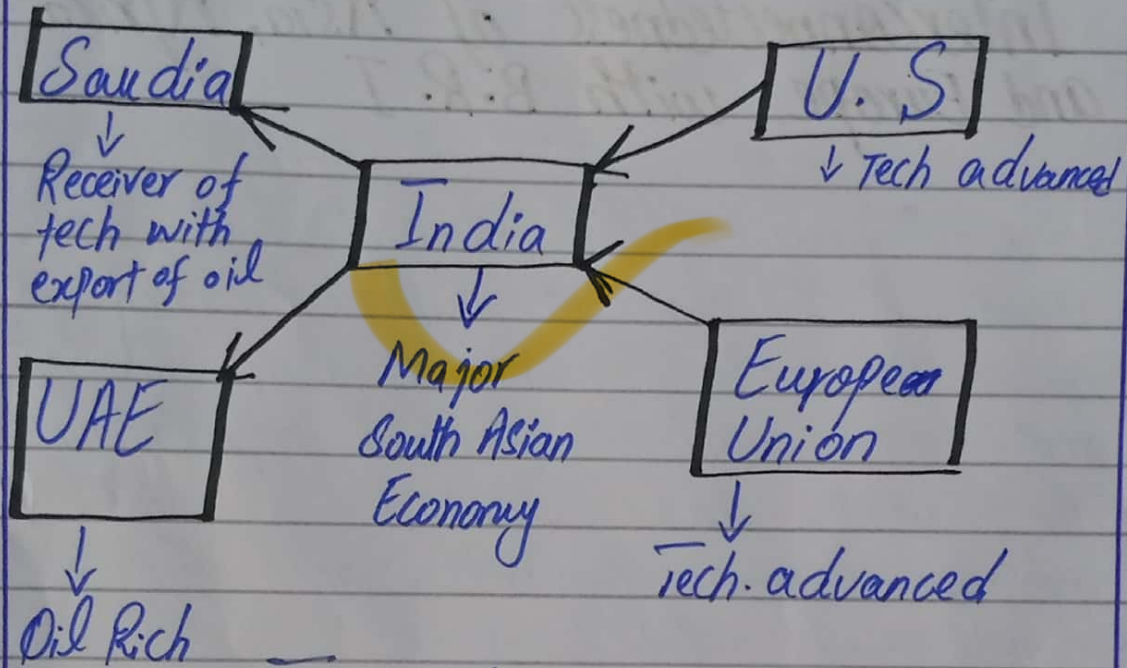 Saudia
Receiver of
tech with
export of oil
U.S
Tech advanced
India
Major
South Asian
Economy
UAE
Oil Rich
European
Union
Tech. advanced